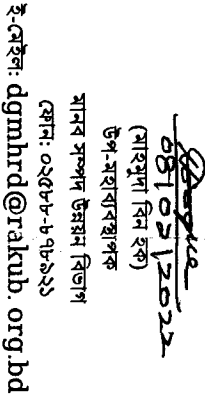 ০৮|০২|২০২২
(মাহমুদা বিন হক)
উপ-মহাব্যবস্থাপক
মানব সম্পদ উন্নয়ন বিভাগ
ফোন:
ই-মেইল: dgmhrd@rakub.org.bd